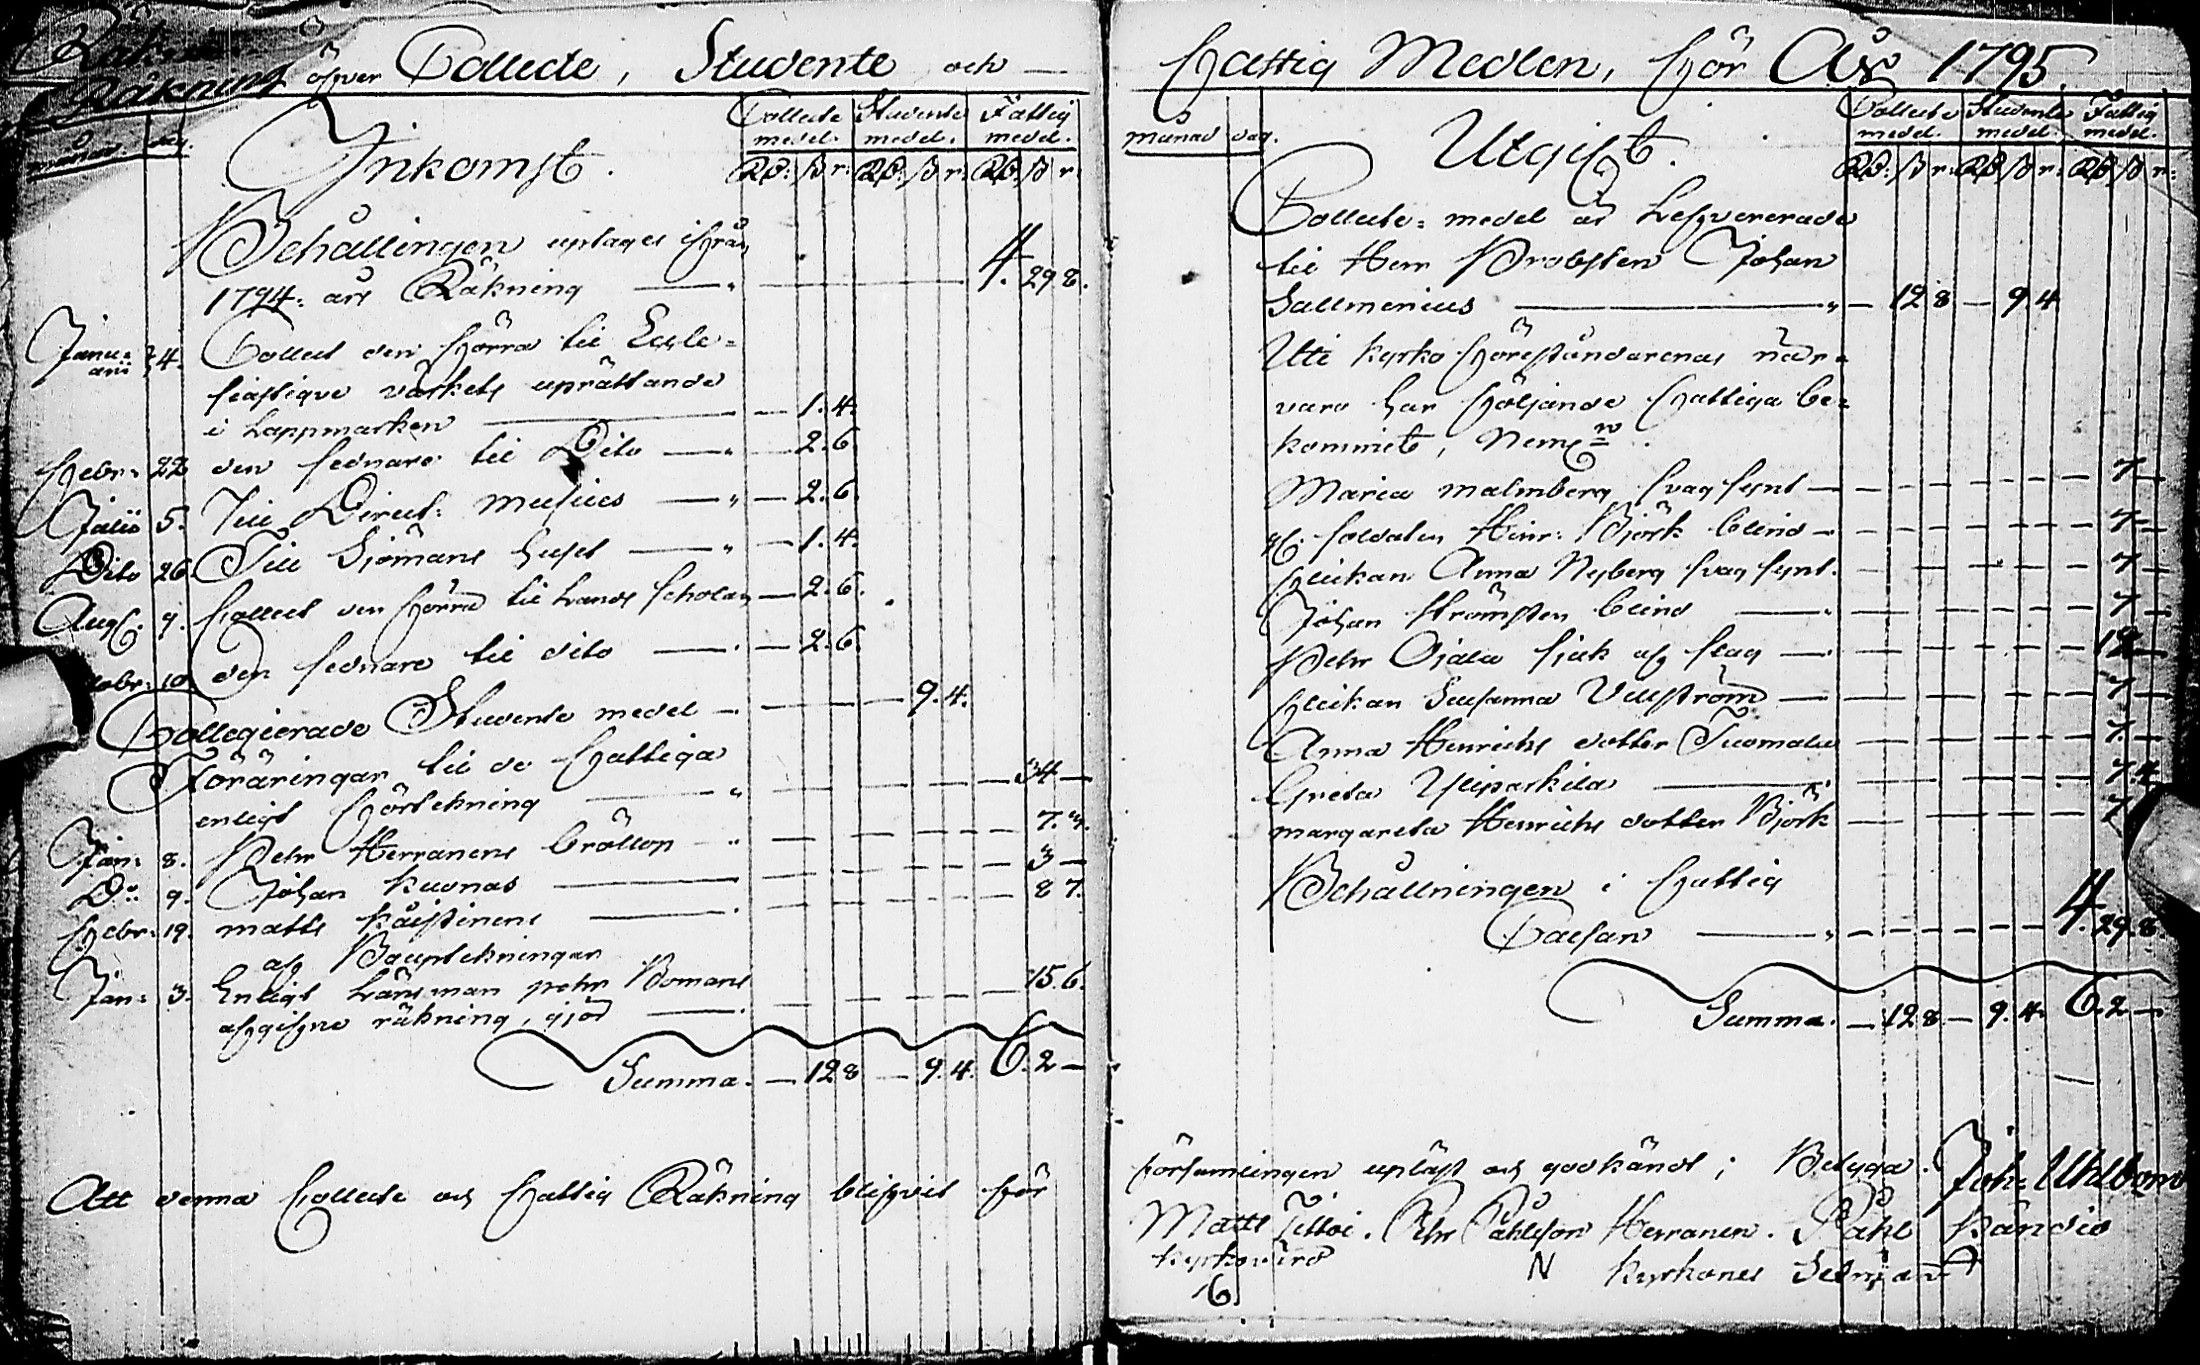 Räkning öfver Collecte, Studente och
månad. dag.
Inkomst.
Collecte medel. Studente medel. Fattig medel.
Rd: ß r: Rd: ß r: Rd: ß r:
Behållningen uptages ifrån
1794: års Räkning 4. 29 8.
Janu=arii 4. Collect den förra til Eccle=
siastique värkets uprättande
i Lappmarken 1. 4.
Febr: 22 den sednare til Dito 2. 6.
Julii 5. Till Direct: Musices 2. 6.
Dito 26. Till Sjömans huset 1. 4.
Aug: 9. Collect den förra til Lands Scholan 2. 6.
10 den sednare til dito 2. 6.
Collegierade Studente medel 9. 4.
Föräringar til de Fattiga
enligt förtekning 34
Jan: 8. Pehr Herranens bröllop 7.
Do 9. Johan Kuonas 3
Febr: 19. Matts 8 7.
af Båuptekningar
Jan: 3. Enligt Länsman Pehr Bomans 15. 6.
afgifne räkning, gjod
Summa. 12 8 9. 4. 6. 2
Att denna Collecte och Fattig Räkning blifvit för
Fattig Medlen, för År 1795.
månad dag.
Utgift.
Collecte medel. Studente medel. Fattig medel.
Rd: ß r: Rd: ß r: Rd: ß r:
Collecte=medel är Lefvererade
til Herr Probsten Johan
Salmenius 12 8 9. 4
Uti Kyrko Föreståndarenas när=
varo har följande Fattiga be=
kommit, Neml
Maria Malmberg svag synt 7
gl. soldaten Hinr: Björk blind 7
Flickan Anna Nyberg svag synt. 7
Johan Strömsten blind 7
Pehr Ojala sjuk af slag 12
Flickan Susanna Ullström 7
Anna Henrichs dotter Tuomala 7
Greta Ylipaskila 7. 4
Margareta Henrichs dotter Björk 7
Behållningen i Fattig
Cassan 4. 29. 8.
Summa. 12 8 9. 4. 6. 2
Församlingen upläst och godkändt; Betyga. Joh: Uhlbom
Matts Pehr Påhlsson Herranen. Påhl
Kyrkovärd N Kyrkones